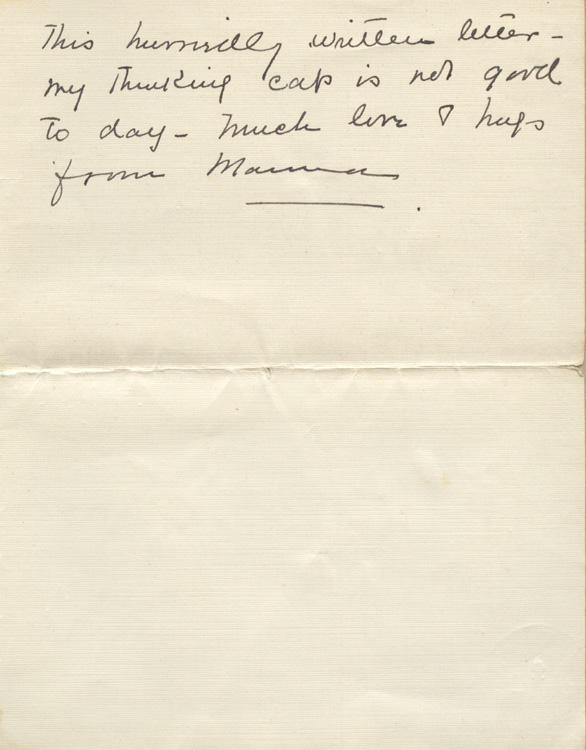 This hurriedly written letter -
my thinking cap is not good
to day - much love & hugs
from Mamma